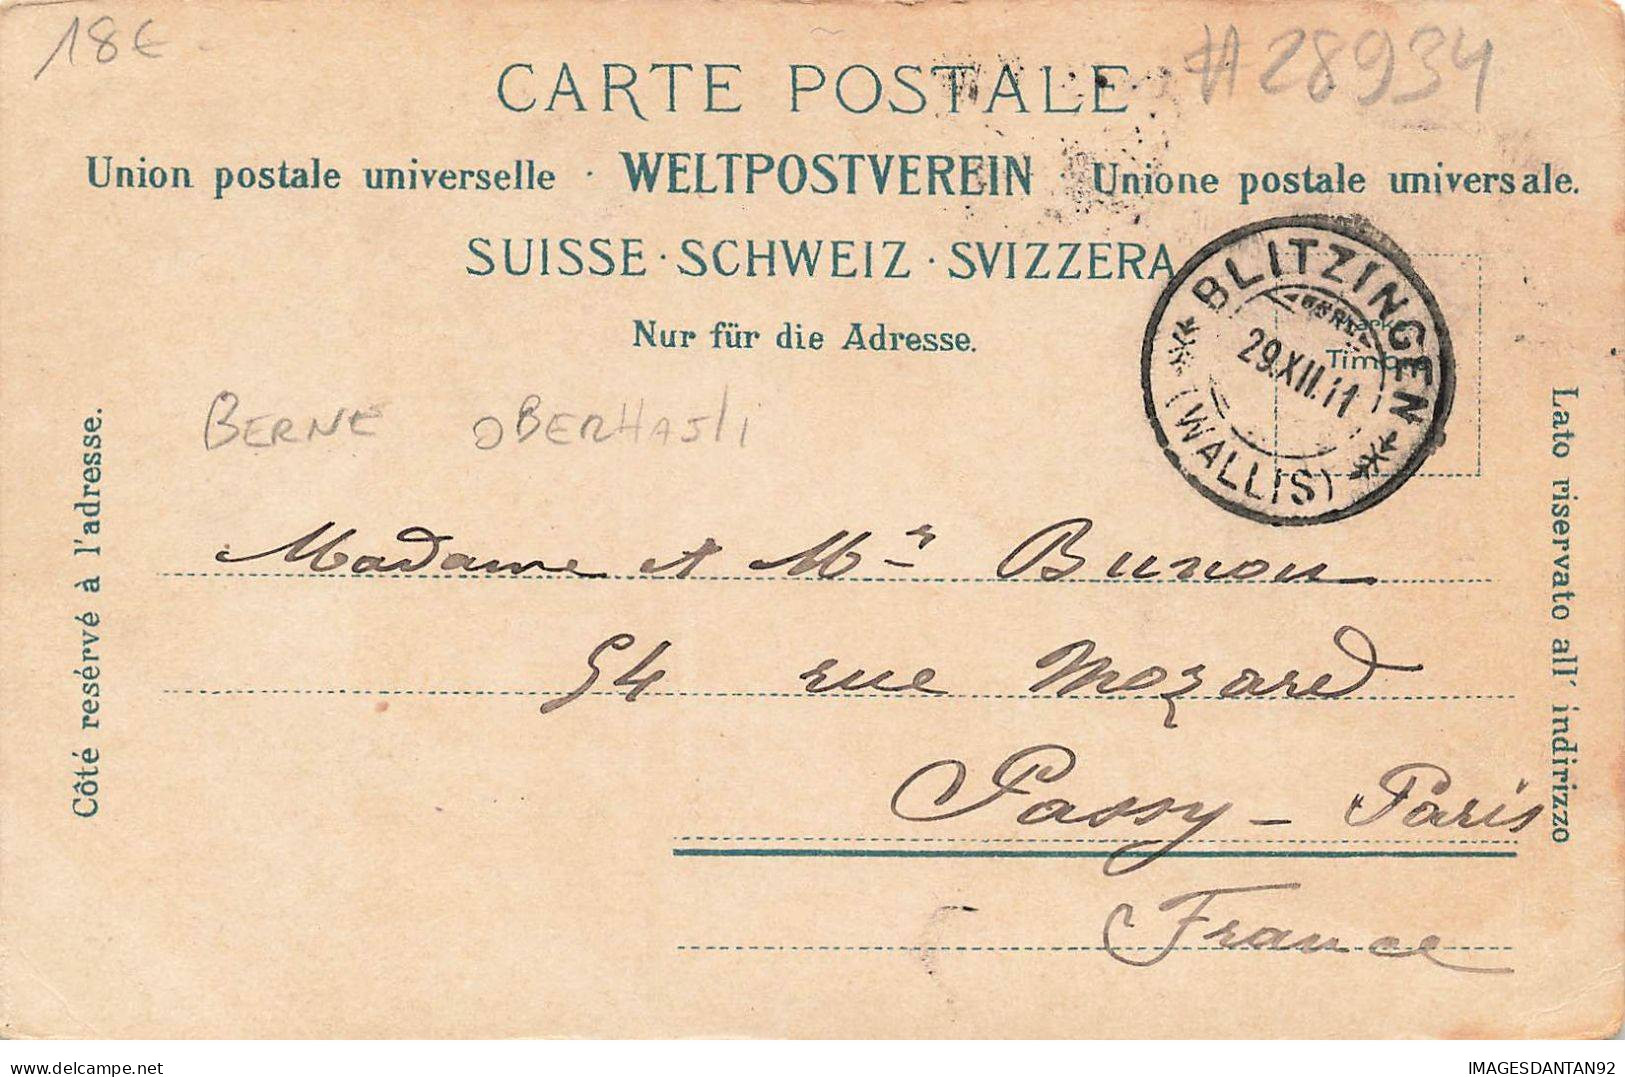 18€
#28934
CARTE POSTALE
Union postale universelle · WELTPOSTVEREIN · Unione postale universale.
SUISSE · SCHWEIZ · SVIZZERA
Nur für die Adresse.
BLITZINGEN
29.XII.11
(WALLIS)
Timbre
BERNE OBERHASLI
Côté resérvé à l'adresse.
Lato riservato all' indirizzo
Madame et Mr Bunon
54 rue Mozard
Passy - Paris
France
IMAGESDANTAN92